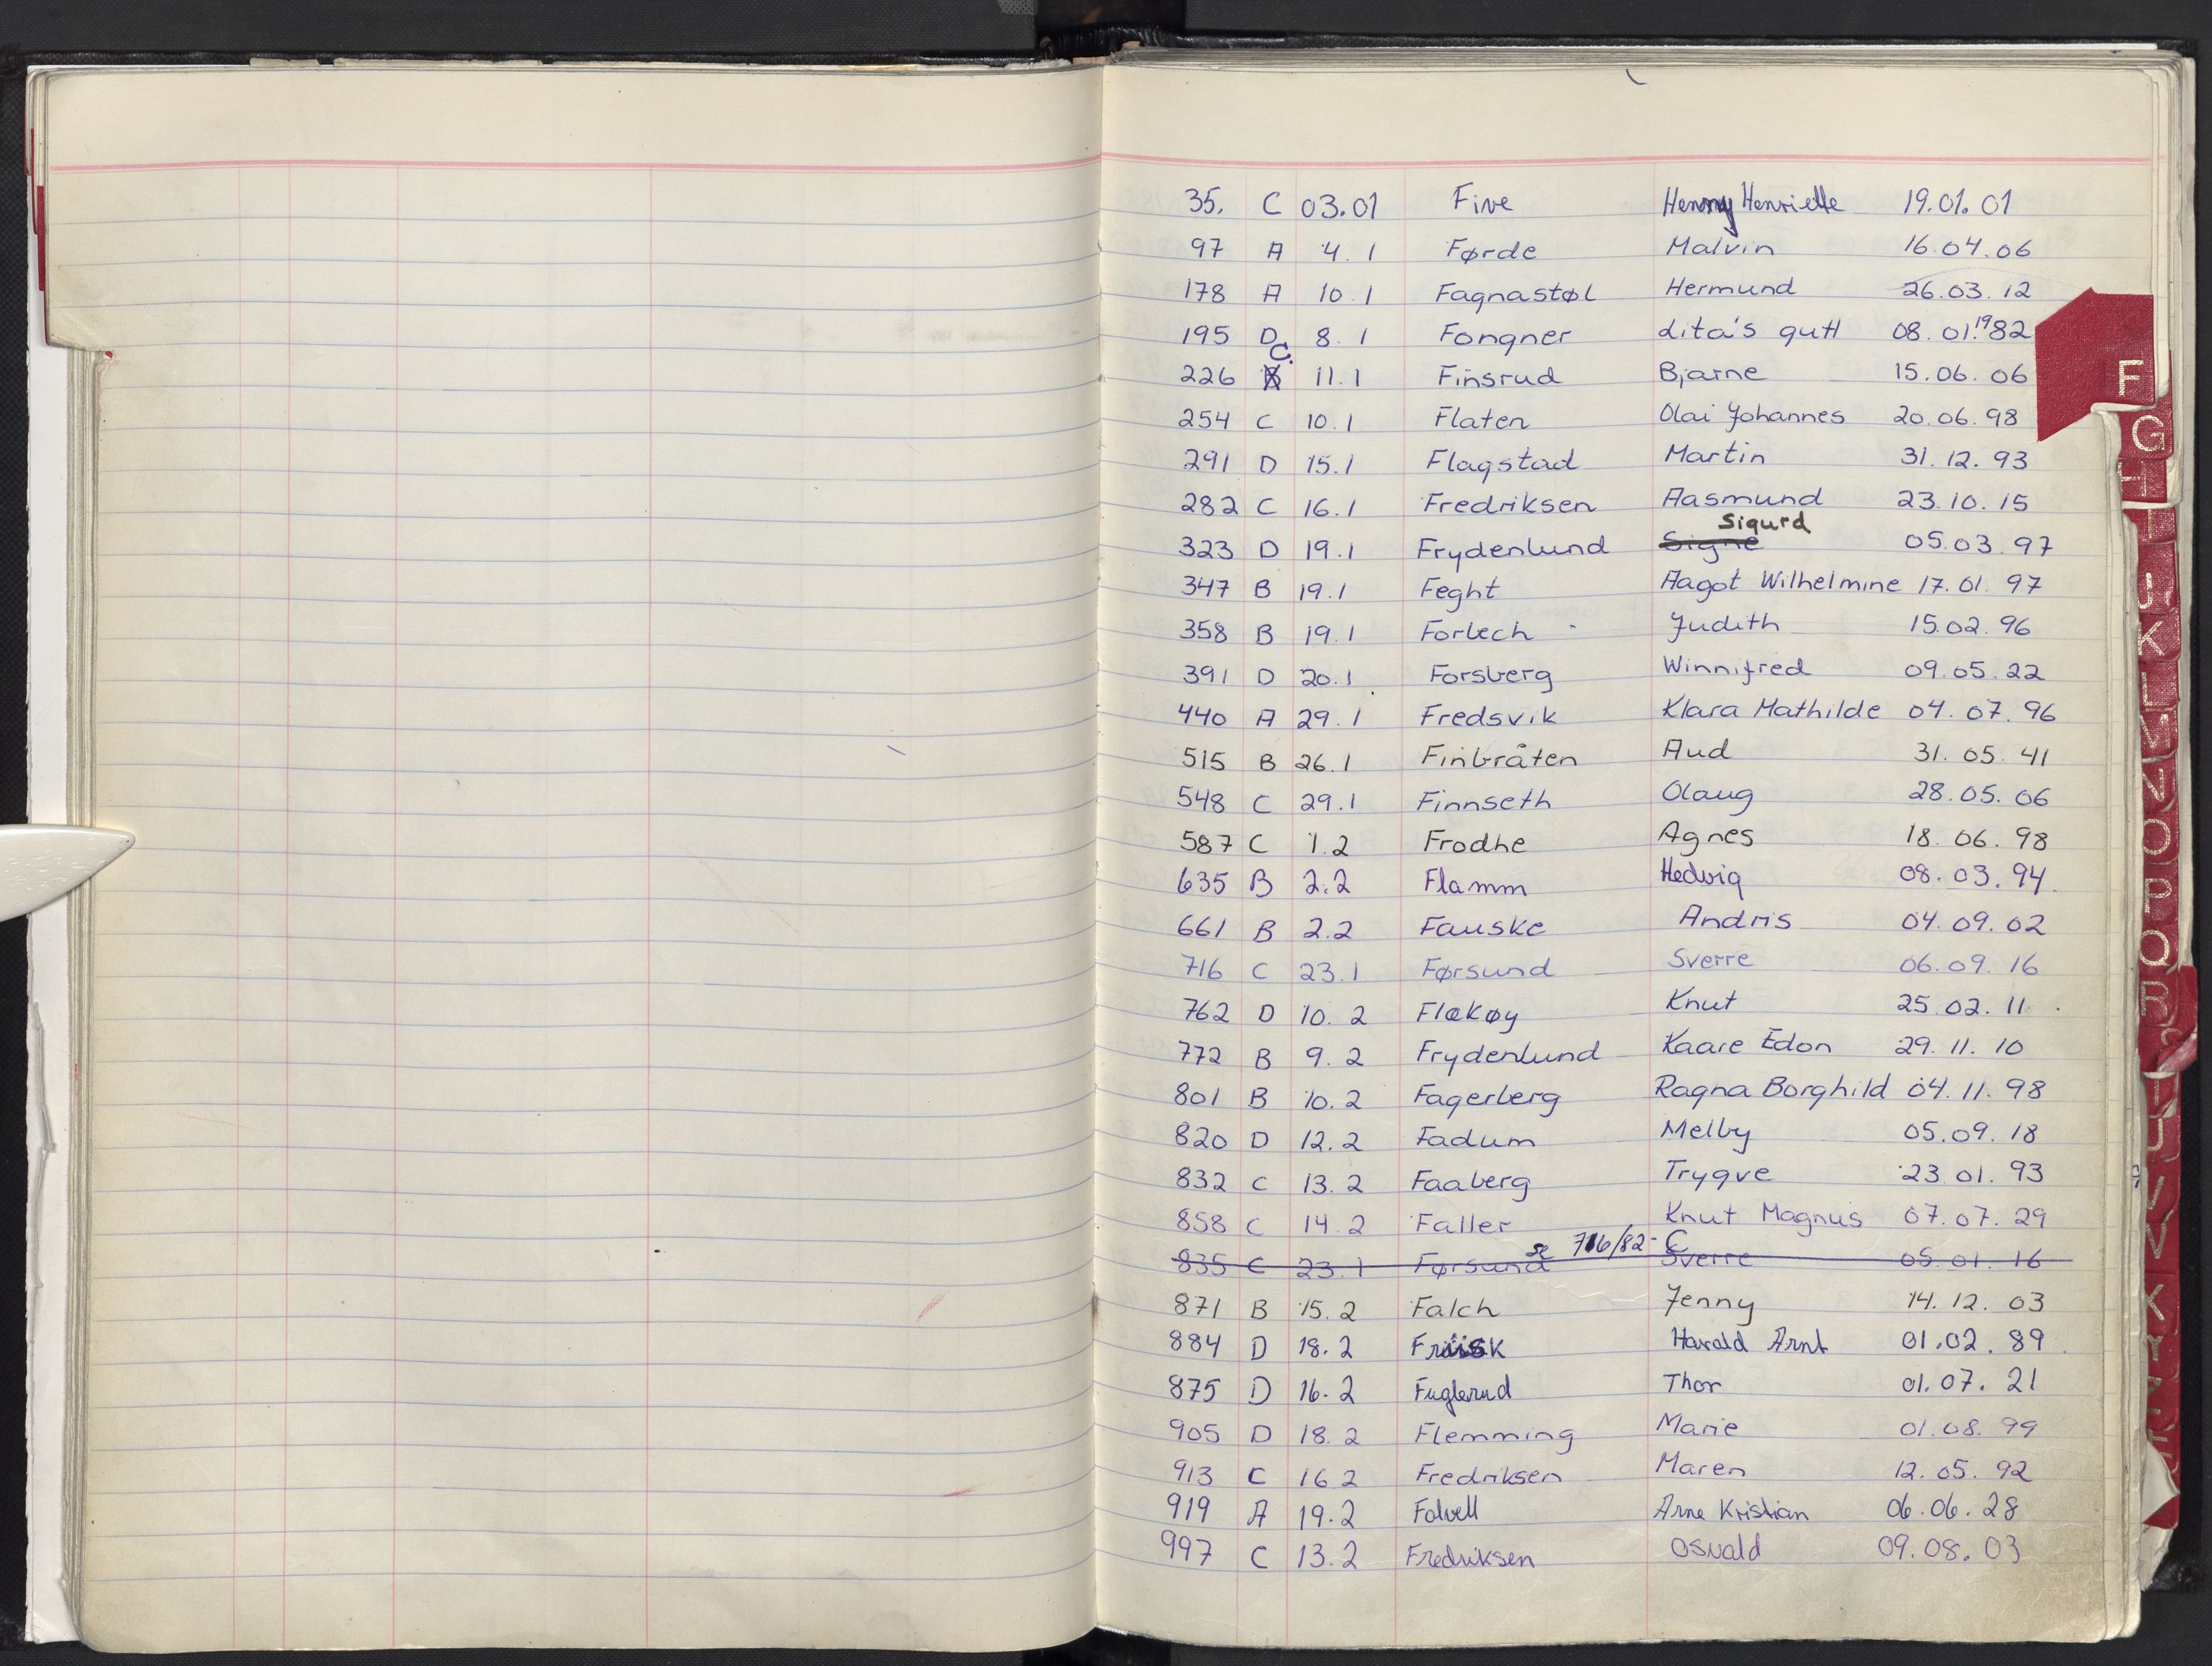 35. C 03.01 Five Henny Henriette 19.01.01
97 A 4.1 Førde Malvin 16.04.06
178 A 10.1 Fagnastøl Hermund 26.03.12
195 D 8.1 Fongner Lita's gutt 08.01.1982
C.
226 11.1 Finsrud Bjarne 15.06.06
254 C 10.1 Flaten Olai Johannes 20.06.98
291 D 15.1 Flagstad Martin 31.12.93
282 C 16.1 Fredriksen Aasmund 23.10.15
Sigurd
323 D 19.1 Frydenlund Signe 05.03.97
347 B 19.1 Feght Aagot Wilhelmine 17.01.97
358 B 19.1 Forbech Judith 15.02.96
391 D 20.1 Forsberg Winnifred 09.05.22
440 A 29.1 Fredsvik Klara Mathilde 04.07.96
515 B 26.1 Finbråten Aud 31.05.41
548 C 29.1 Finnseth Olaug 28.05.06
587 C 1.2 Frodhe Agnes 18.06.98
635 B 2.2 Flamm Hedvig 08.03.94.
661 B 2.2 Fauske Andris 04.09.02
716 C 23.1 Førsund Sverre 06.09.16
762 D 10.2 Flekøy Knut 25.02.11
772 B 9.2 Frydenlund Kaare Edon 29.11.10
801 B 10.2 Fagerberg Ragna Borghild 04.11.98
820 D 12.2 Fadum Melby 05.09.18
832 C 13.2 Faaberg Trygve 23.01.93
858 C 14.2 Faller Knut Magnus 07.07.29
se 716/82-C
835 C 23.1 Førsund Sverre 05.01.16
871 B 15.2 Falch Jenny 14.12.03
884 D 18.2 Friisk Harald Arnt 01.02.89
875 D 16.2 Fuglerud Thor 01.07.21
905 D 18.2 Flemming Marie 01.08.99
913 C 16.2 Fredriksen Maren 12.05.92
919 A 19.2 Folvell Arne Kristian 06.06.28
997 C 13.2 Fredriksen Osvald 09.08.03
F
G
H
I
J
K
L
M
N
O
P
Q
R
S
T
U
V
X
Y